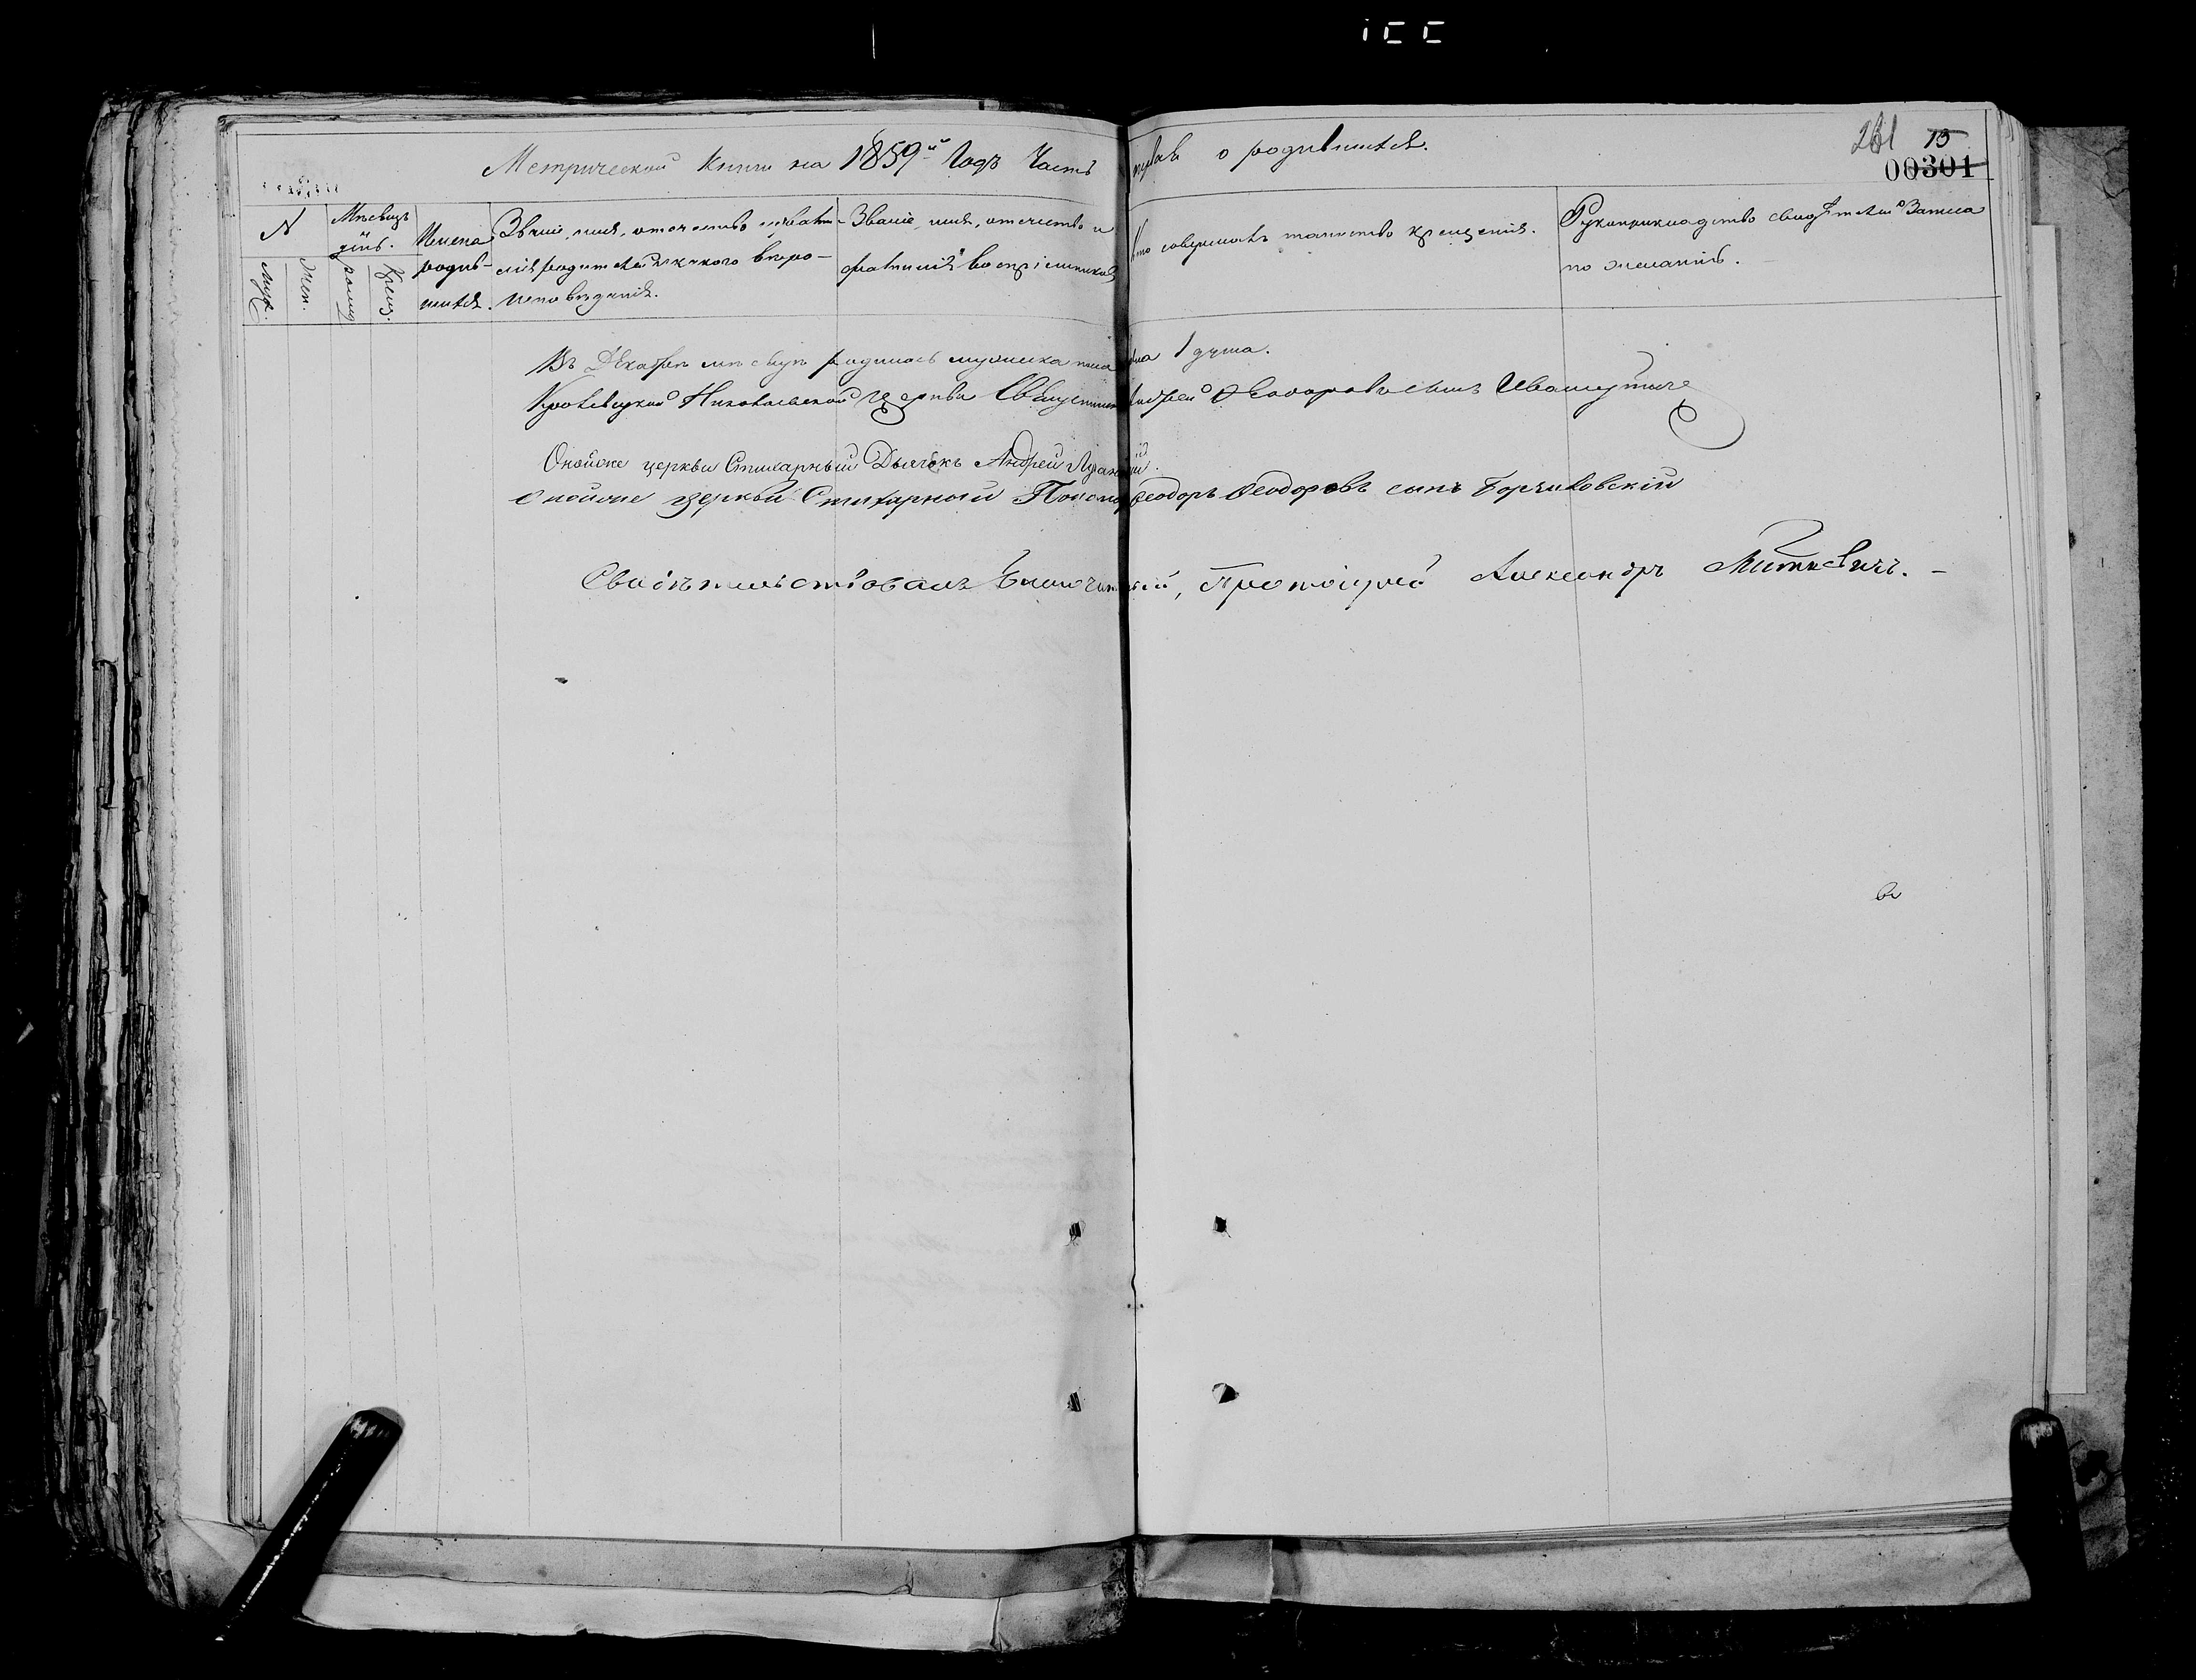 261 15
00301
Метрической Книги на 1859й Годъ Часть первая о родившихся.
N
Муж.
Жен.
Мѣсяцъ
дни.
рожд
Крещ.
Имена
родив-
шихся.
Званіе, имя, отечество и фами-
лія родителей и какого вѣро-
исповѣданія.
Званіе, имя, отечество и
фамилія воспріемниковъ
Кто совершалъ таинство крещенія.
Рукоприкладство свидѣтелей Записа
по желанію.
Въ Декабрѣ мѣсяцѣ родилось мужеска пола одна 1 душа.
Николаевской церкви Священникъ Андрей Феодоровъ сынъ
Оной же церкви Стихарный Дьячекъ Андрей
Оной же церкви Стихарный Пономарь Феодоръ Феодоровъ сынъ
Свидѣтельствовалъ Благочинный, Протоіерей Александръ Миткевичъ.